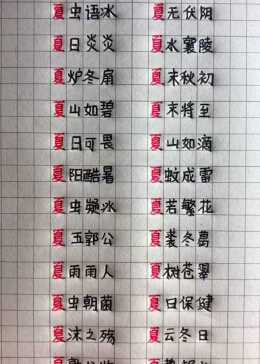 夏虫语冰 夏无伏阴
夏日炎炎 夏水襄陵
夏炉冬扇 夏末秋初
夏山如碧 夏末将至
夏日可畏 夏山如滴
夏阳酷暑 夏蚊成雷
夏虫疑冰 夏若繁花
夏五郭公 夏裘冬葛
夏雨雨人 夏树苍翠
夏虫朝菌 夏日保健
夏沫之殇 夏云冬日
夏 夏